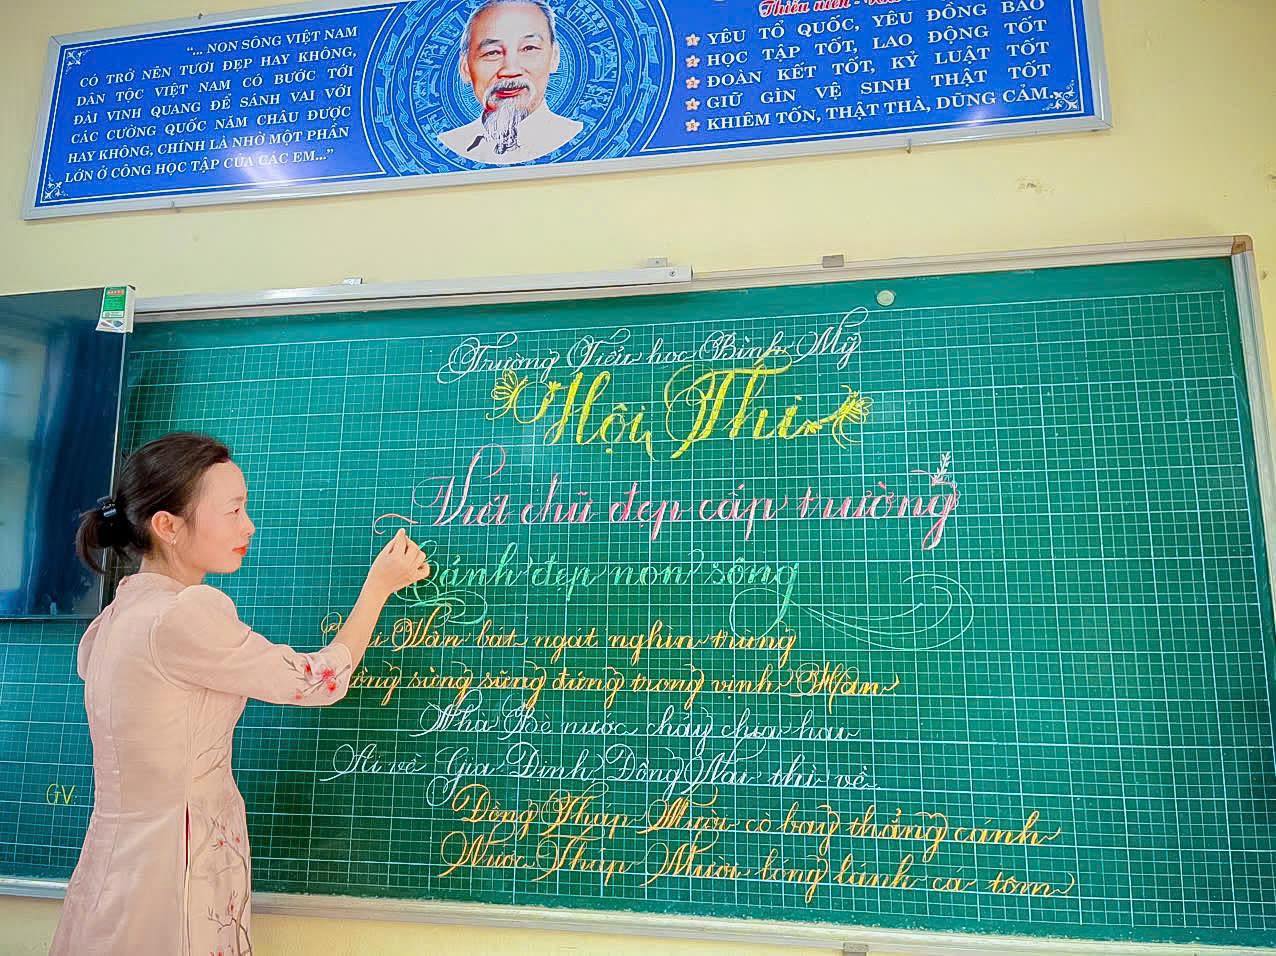 “... NON SÔNG VIỆT NAM
CÓ TRỞ NÊN TƯƠI ĐẸP HAY KHÔNG,
DÂN TỘC VIỆT NAM CÓ BƯỚC TỚI
ĐÀI VINH QUANG ĐỂ SÁNH VAI VỚI
CÁC CƯỜNG QUỐC NĂM CHÂU ĐƯỢC
HAY KHÔNG, CHÍNH LÀ NHỜ MỘT PHẦN
LỚN Ở CÔNG HỌC TẬP CỦA CÁC EM...”
Thiếu niên -
YÊU TỔ QUỐC, YÊU ĐỒNG BÀO
HỌC TẬP TỐT, LAO ĐỘNG TỐT
ĐOÀN KẾT TỐT, KỶ LUẬT TỐT
GIỮ GÌN VỆ SINH THẬT TỐT
KHIÊM TỐN, THẬT THÀ, DŨNG CẢM.
Trường Tiểu học Bình Mỹ
Hội Thi
Viết chữ đẹp cấp trường
Cảnh đẹp non sông
Hải Vân bát ngát nghìn trùng
sừng sững đứng trong vịnh Hàn
Nhà Bè nước chảy chia hai
Ai về Gia Định, Đồng Nai thì về.
Đồng Tháp Mười cò bay thẳng cánh
Nước Tháp Mười lóng lánh cá tôm
GV: